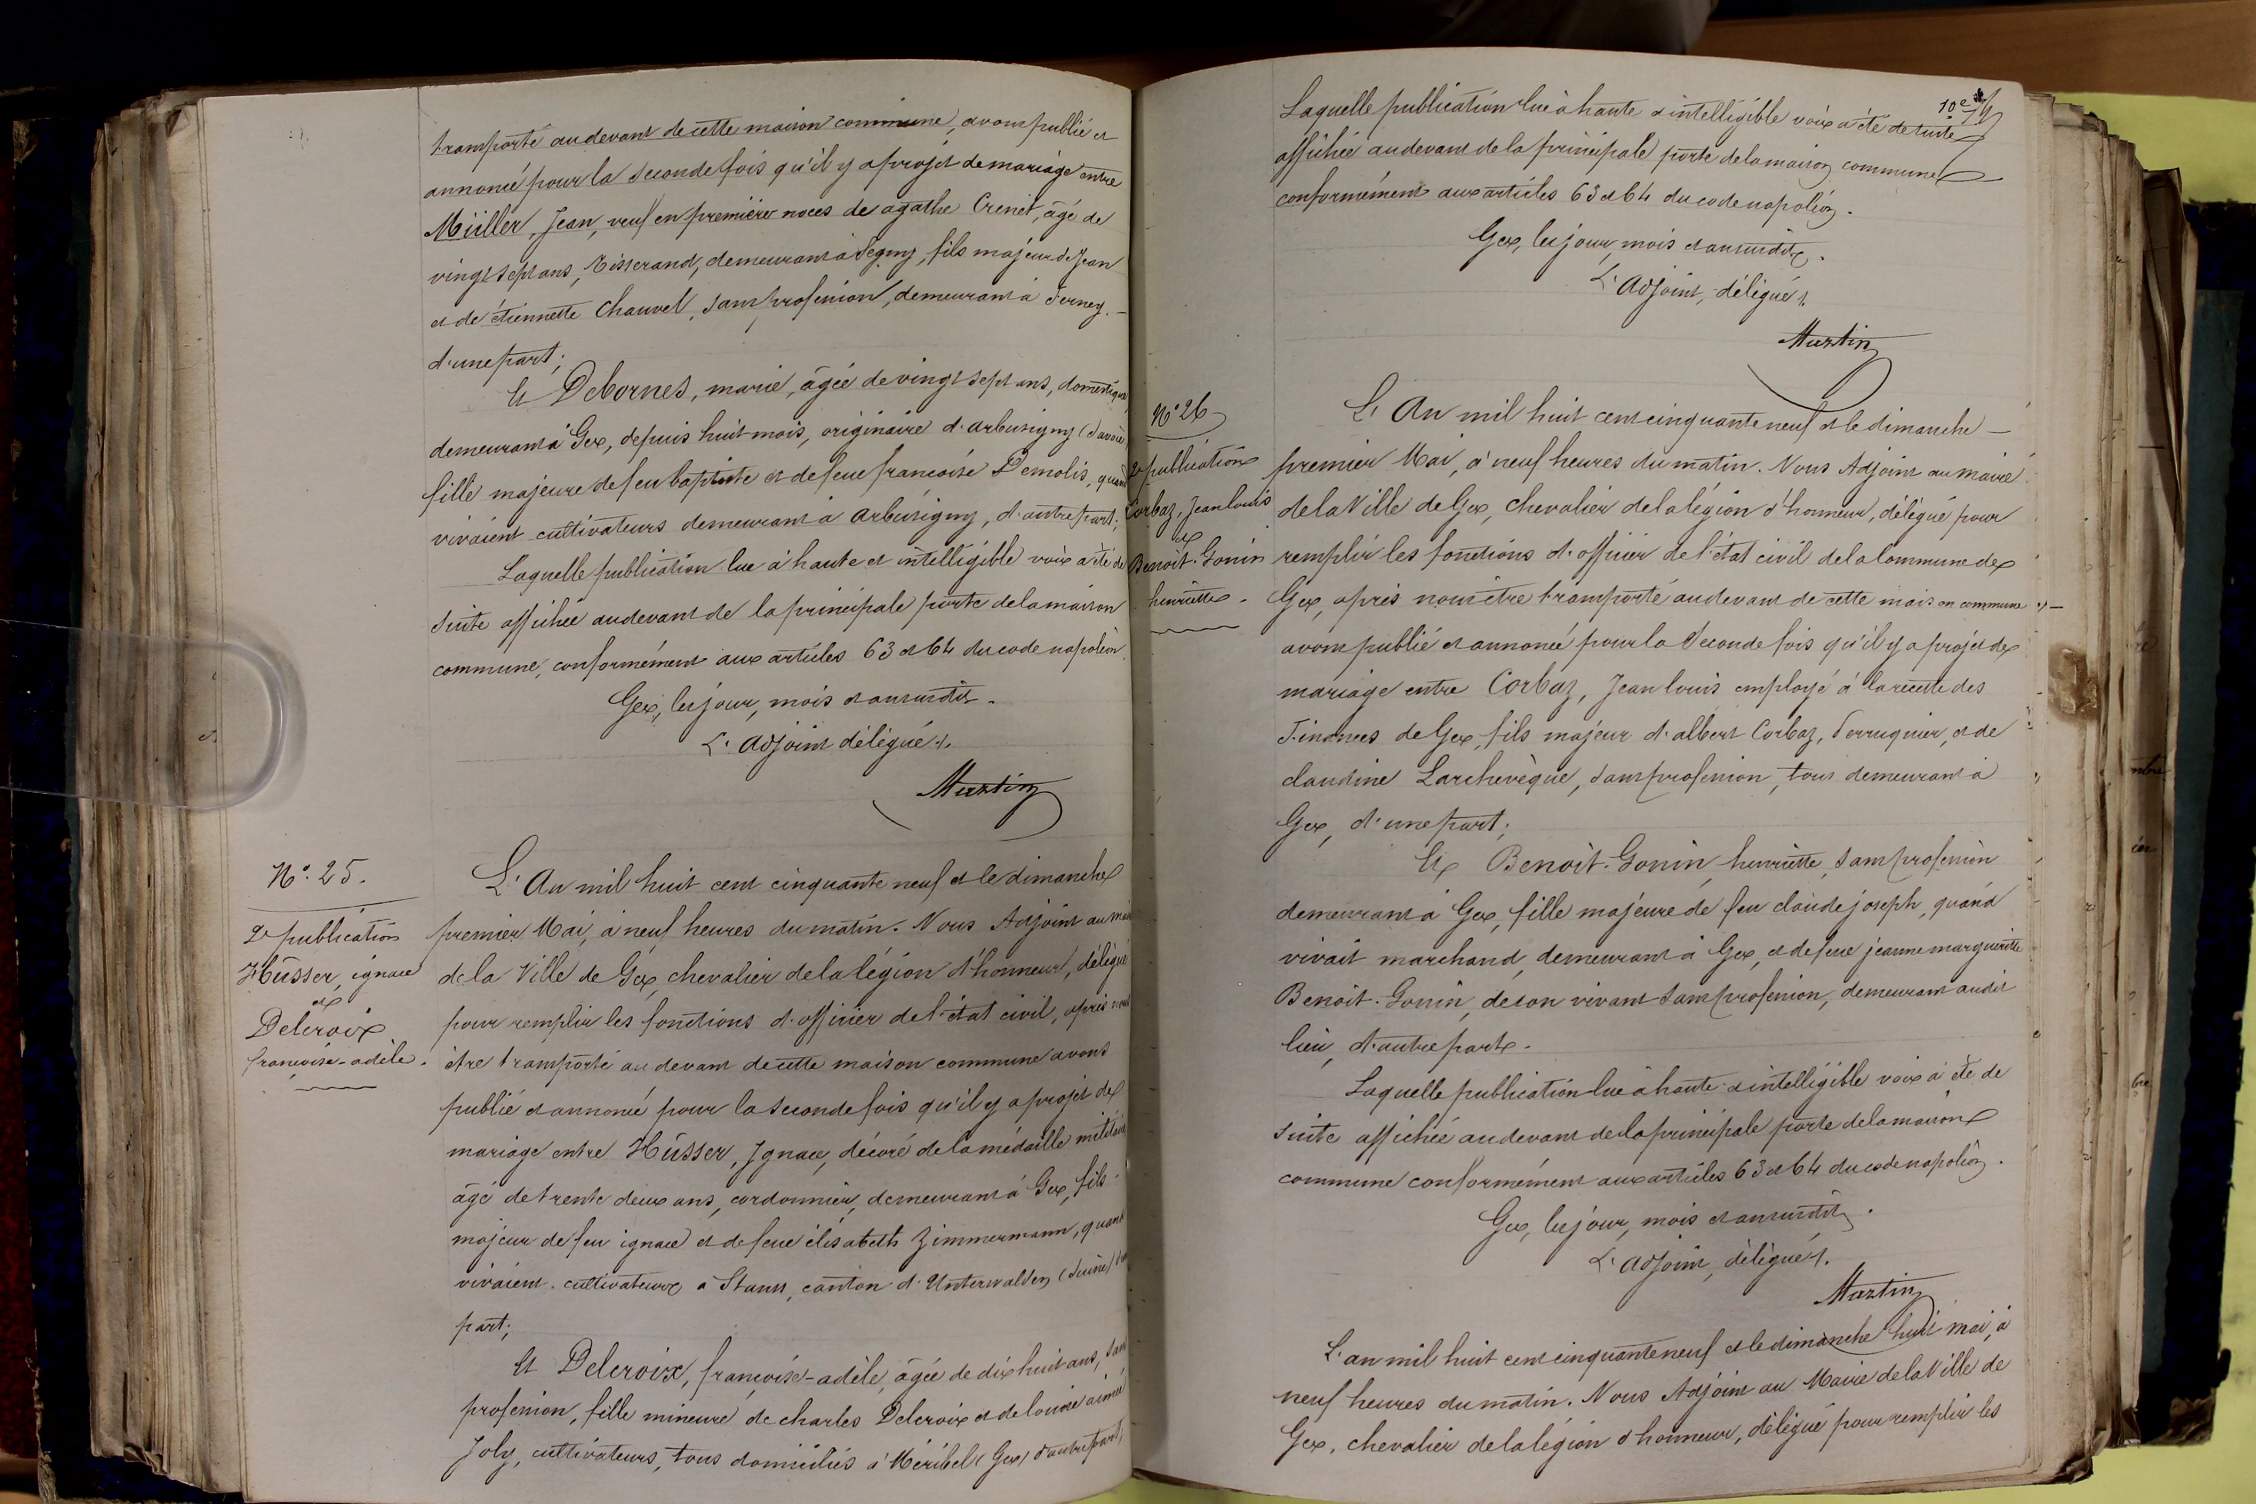 transporté au devant de cette maison commune, avons publié et
annoncé pour la seconde fois qu'il y a projet de mariage entre
Müller, Jean, veuf en première noces de agathe Crenet, âgé de
vingt sept ans, Tisserand, demeurant à Segny, fils majeur de Jean
et de étiennette Chauvet, sans profession, demeurant à Ferney. —
d'une part;
Et Debornes, marie, âgée de vingt sept ans, domestique,
demeurant à Gex, depuis huit mois, originaire d'arbusigny (Savoie)
fille majeure de feu baptiste et de feue francoise Demolis, quand
vivaient cultivateurs demeurant à arbusigny, d'autre part;
Laquelle publication lue à haute et intelligible voix a été de
suite affichée au devant de la principale porte de la maison
commune, conformément aux articles 63 et 64 du code napoléon.
Gex, les jour, mois et an susdits.
L'adjoint délégué.
Martin
N° 25.
2e publication
Hüsser, ignace
et
Delcroix
francoise-adèle.
L'An mil huit cent cinquante neuf et le dimanche
premier Mai, à neuf heures du matin. Nous Adjoint au maire
de la Ville de Gex, chevalier de la légion d'honneur, délégué
pour remplir les fonctions d'officier de l'état civil, après nous
être transporté au devant de cette maison commune avons
publié et annoncé pour la seconde fois qu'il y a projet de
mariage entre Hüsser, Ignace, décoré de la médaille militaire
âgé de trente deux ans, cordonnier, demeurant à Gex, fils
majeur de feu ignace et de feue élisabeth Zimmermann, quand
vivaient cultivateurs à Stans, canton d'Unterwalden (Suisse) d'une
part;
Et Delcroix, francoise-adèle, âgée de dix huit ans, sans
profession, fille mineure de charles Delcroix et de louise aimée
Joly, cultivateurs, tous domiciliés à Méribel (Gex) d'autre part;
10e
Laquelle publication lue à haute et intelligible voix a été de suite
affichée au devant de la principale porte de la maison commune
conformément aux articles 63 et 64 du code napoléon.
Gex, les jour, mois et an susdits.
L'adjoint, délégué.
Martin
N° 26
2e publication
Corbaz, Jean louis
et
Benoit-Gonin
henriette.
L'An mil huit cent cinquante neuf et le dimanche —
premier Mai, à neuf heures du matin. Nous Adjoint au maire
de la Ville de Gex, chevalier de la légion d'honneur, délégué pour
remplir les fonctions d'officier de l'état civil de la Commune de
Gex, après nous être transporté au devant de cette maison commune, —
avons publié et annoncé pour la seconde fois qu'il y a projet de
mariage entre Corbaz, Jean louis employé à la recette des
Finances de Gex, fils majeur d'albert Corbaz, Perruquier, et de
claudine Larchevèque, sans profession, tous demeurant à
Gex, d'une part;
Et Benoit-Gonin, henriette, sans profession
demeurant à Gex, fille majeure de feu claude joseph, quand
vivait marchand, demeurant à Gex, et de feue jeanne marguerite
Benoit-Gonin, de son vivant sans profession, demeurant audit
lieu, d'autre part.
Laquelle publication lue à haute et intelligible voix a été de
suite affichée au devant de la principale porte de la maison
commune conformément aux articles 63 et 64 du code napoléon.
Gex, les jour, mois et an susdits.
L'adjoint, délégué.
Martin
L'an mil huit cent cinquante neuf et le dimanche huit mai, à
neuf heures du matin. Nous Adjoint au Maire de la Ville de
Gex, chevalier de la légion d'honneur, délégué pour remplir les